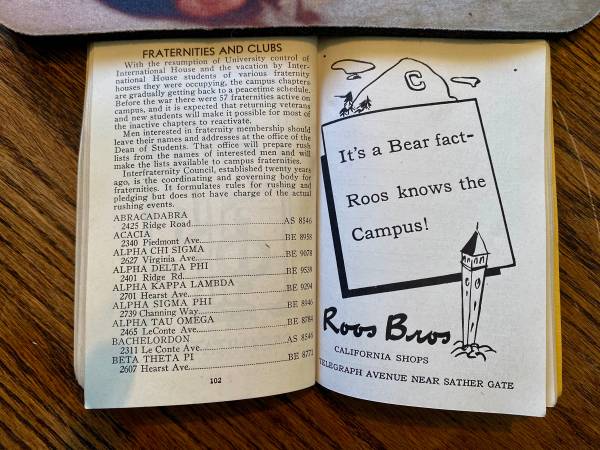 FRATERNITIES AND CLUBS
With the resumption of University control of
International House and the vacation by Inter-
national House students of various fraternity
houses they were occupying, the campus chapters
are gradually getting back to a peacetime schedule.
Before the war there were 57 fraternities active on
campus, and it is expected that returning veterans
and new students will make it possible for most of
the inactive chapters to reactivate.
Men interested in fraternity membership should
leave their names and addresses at the office of the
Dean of Students. That office will prepare rush
lists from the names of interested men and will
make the lists available to campus fraternities.
Interfraternity Council, established twenty years
ago, is the coordinating and governing body for
fraternities. It formulates rules for rushing and
pledging but does not have charge of the actual
rushing events.
ABRACADABRA
2425 Ridge Road AS 8546
ACACIA
2340 Piedmont Ave. BE 8958
ALPHA CHI SIGMA
2627 Virginia Ave. BE 9078
ALPHA DELTA PHI
2401 Ridge Rd. BE 9539
ALPHA KAPPA LAMBDA
2701 Hearst Ave. BE 9294
ALPHA SIGMA PHI
2739 Channing Way. BE 8946
ALPHA TAU OMEGA
2465 LeConte Ave. BE 8784
BACHELORDON
2311 Le Conte Ave. AS 8546
BETA THETA PI
2607 Hearst Ave. BE 8773
102
C
It's a Bear fact-
Roos knows the
Campus!
Roos Bros
CALIFORNIA SHOPS
TELEGRAPH AVENUE NEAR SATHER GATE